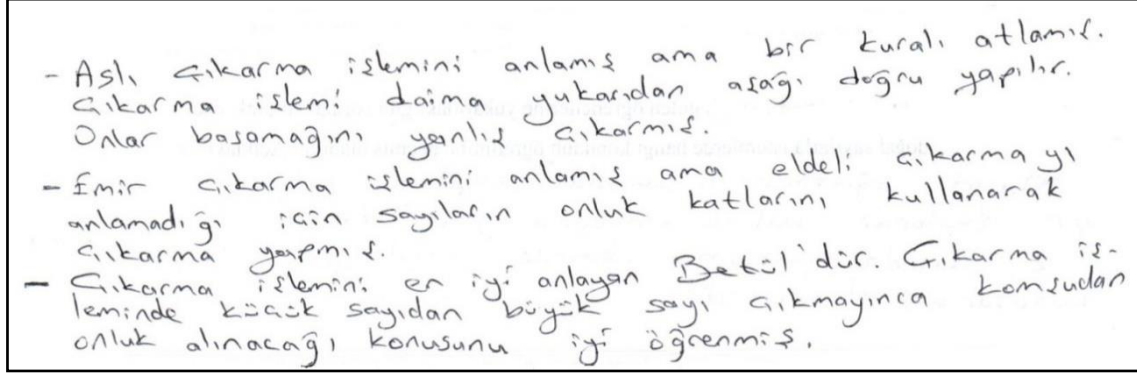 - Aslı çıkarma işlemini anlamış ama bir kuralı atlamış.
Çıkarma işlemi daima yukarıdan aşağı doğru yapılır.
Onlar basamağını yanlış çıkarmış.
- Emir çıkarma işlemini anlamış ama eldeli çıkarma yı
anlamadığı için sayıların onluk katlarını kullanarak
çıkarma yapmış.
- Çıkarma işlemini en iyi anlayan Betül'dür. Çıkarma iş-
leminde küçük sayıdan büyük sayı çıkmayınca komşudan
onluk alınacağı konusunu iyi öğrenmiş.